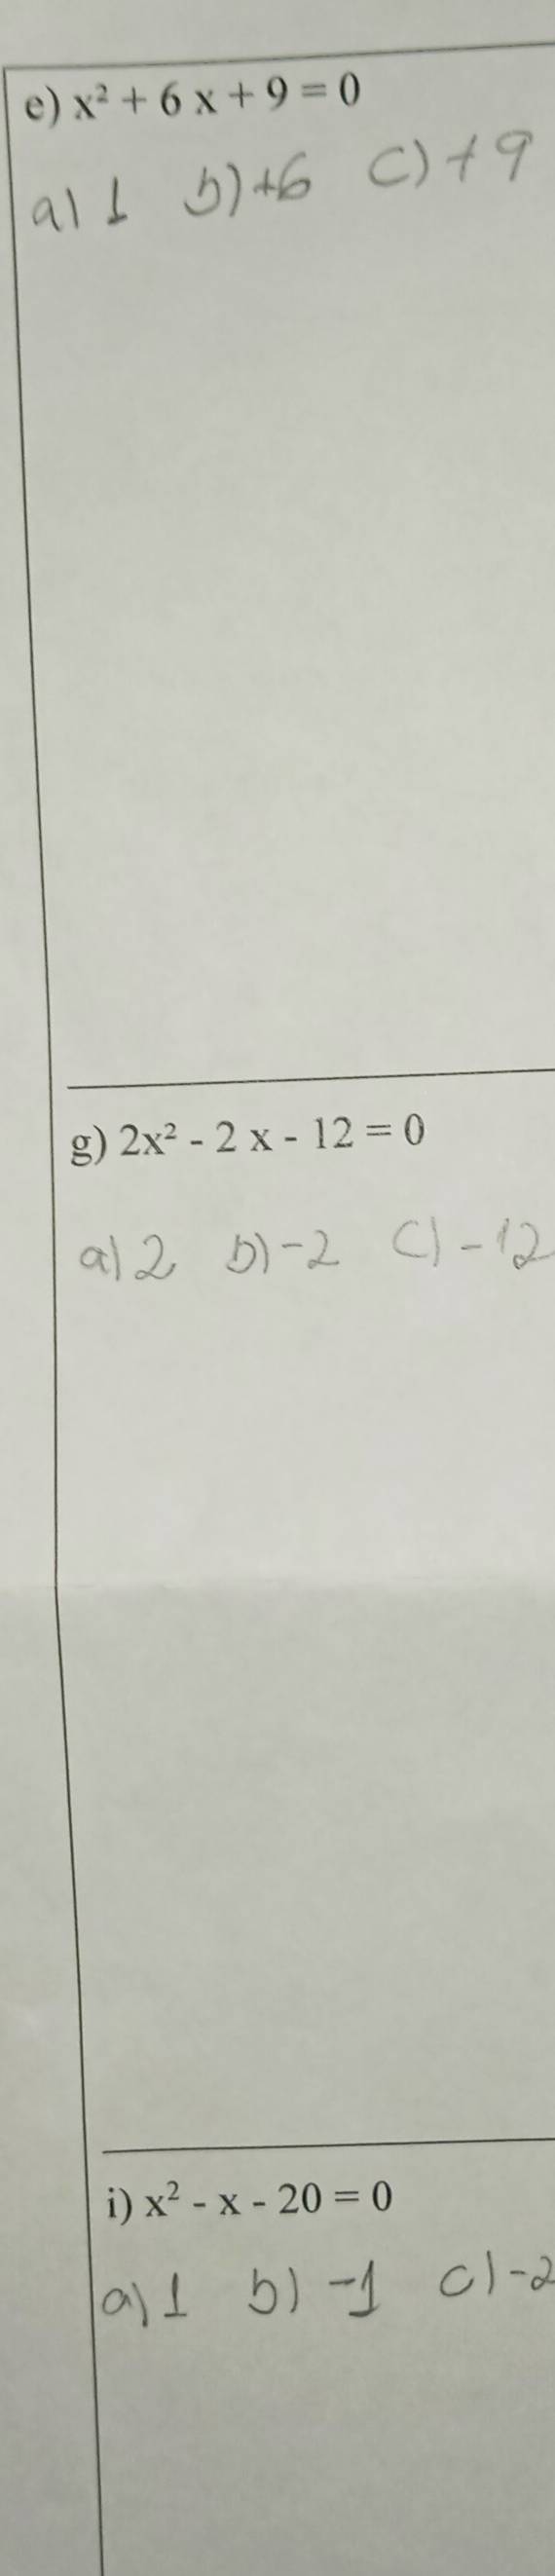 e) x² + 6 x + 9 = 0
a) 1 b) +6 c) +9
g) 2x² - 2 x - 12 = 0
a) 2 b) -2 c) -12
i) x² - x - 20 = 0
a) 1 b) -1 c) -2